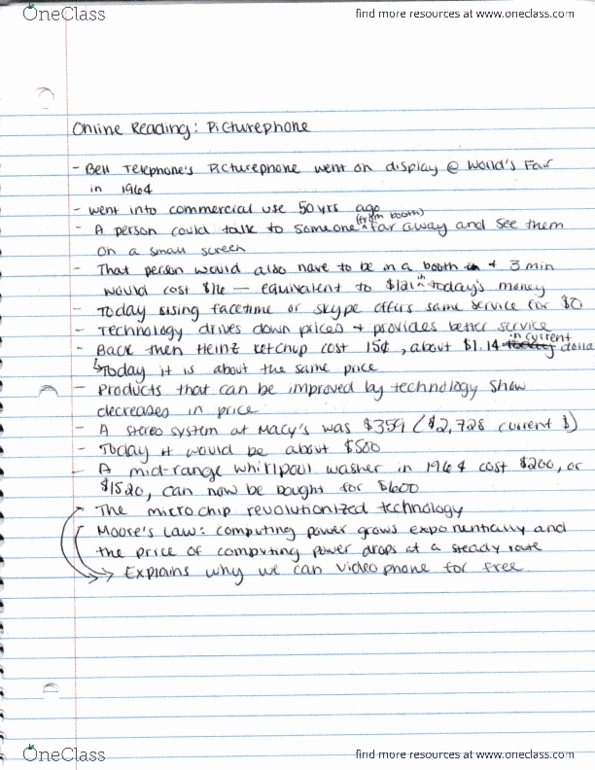 OneClass
find more resources at www.oneclass.com
Online Reading: Picturephone
- Bell Telephone's Picturephone went on display @ World's Fair
in 1964
- went into commercial use 50 yrs ago
- A person could talk to someone (from booth) far away and see them
on a small screen
- That person would also have to be in a booth + 3 min
would cost $16 — equivalent to $121 in today's money
- Today using facetime or skype offers same service for $0
- Technology drives down prices + provides better service
- Back then Heinz ketchup cost 15¢, about $1.14 in current dolla
↳ Today it is about the same price
- Products that can be improved by technology show
decreases in price
- A stereo system at Macy's was $359 ($2,728 current $)
- Today it would be about $500
- A mid-range whirlpool washer in 1964 cost $200, or
$1520, can now be bought for $600
- The microchip revolutionized technology
Moore's Law: computing power grows exponentially and
the price of computing power drops at a steady rate
→ Explains why we can videophone for free
OneClass
find more resources at www.oneclass.com